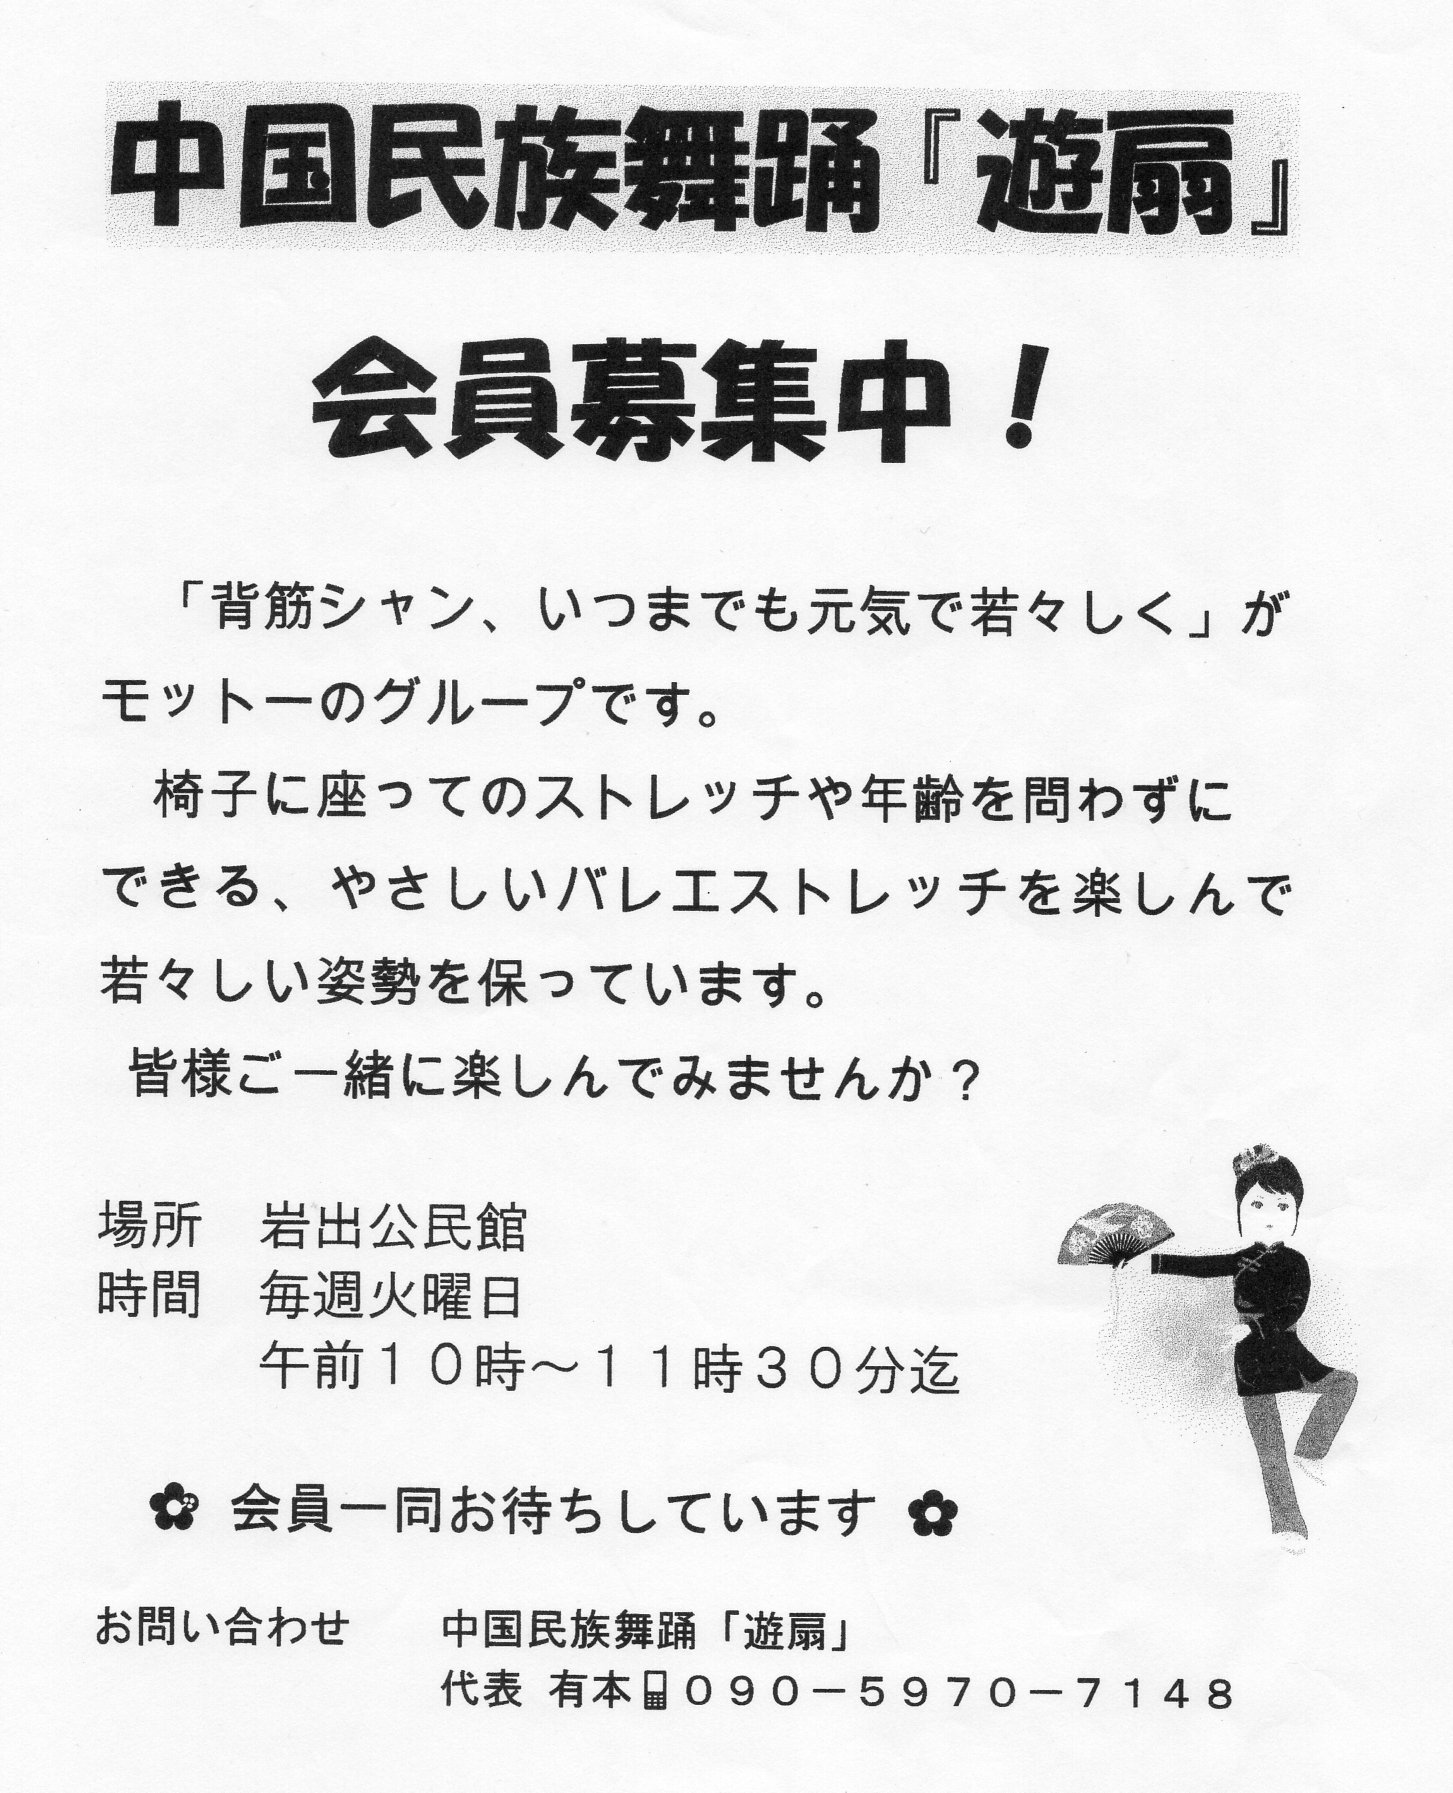 中国民族舞踊『遊扇』
会員募集中！
「背筋シャン、いつまでも元気で若々しく」が
モットーのグループです。
椅子に座ってのストレッチや年齢を問わずに
できる、やさしいバレエストレッチを楽しんで
若々しい姿勢を保っています。
皆様ご一緒に楽しんでみませんか？
場所　岩出公民館
時間　毎週火曜日
午前１０時～１１時３０分迄
✿ 会員一同お待ちしています ✿
お問い合わせ　中国民族舞踊「遊扇」
代表 有本📱０９０－５９７０－７１４８